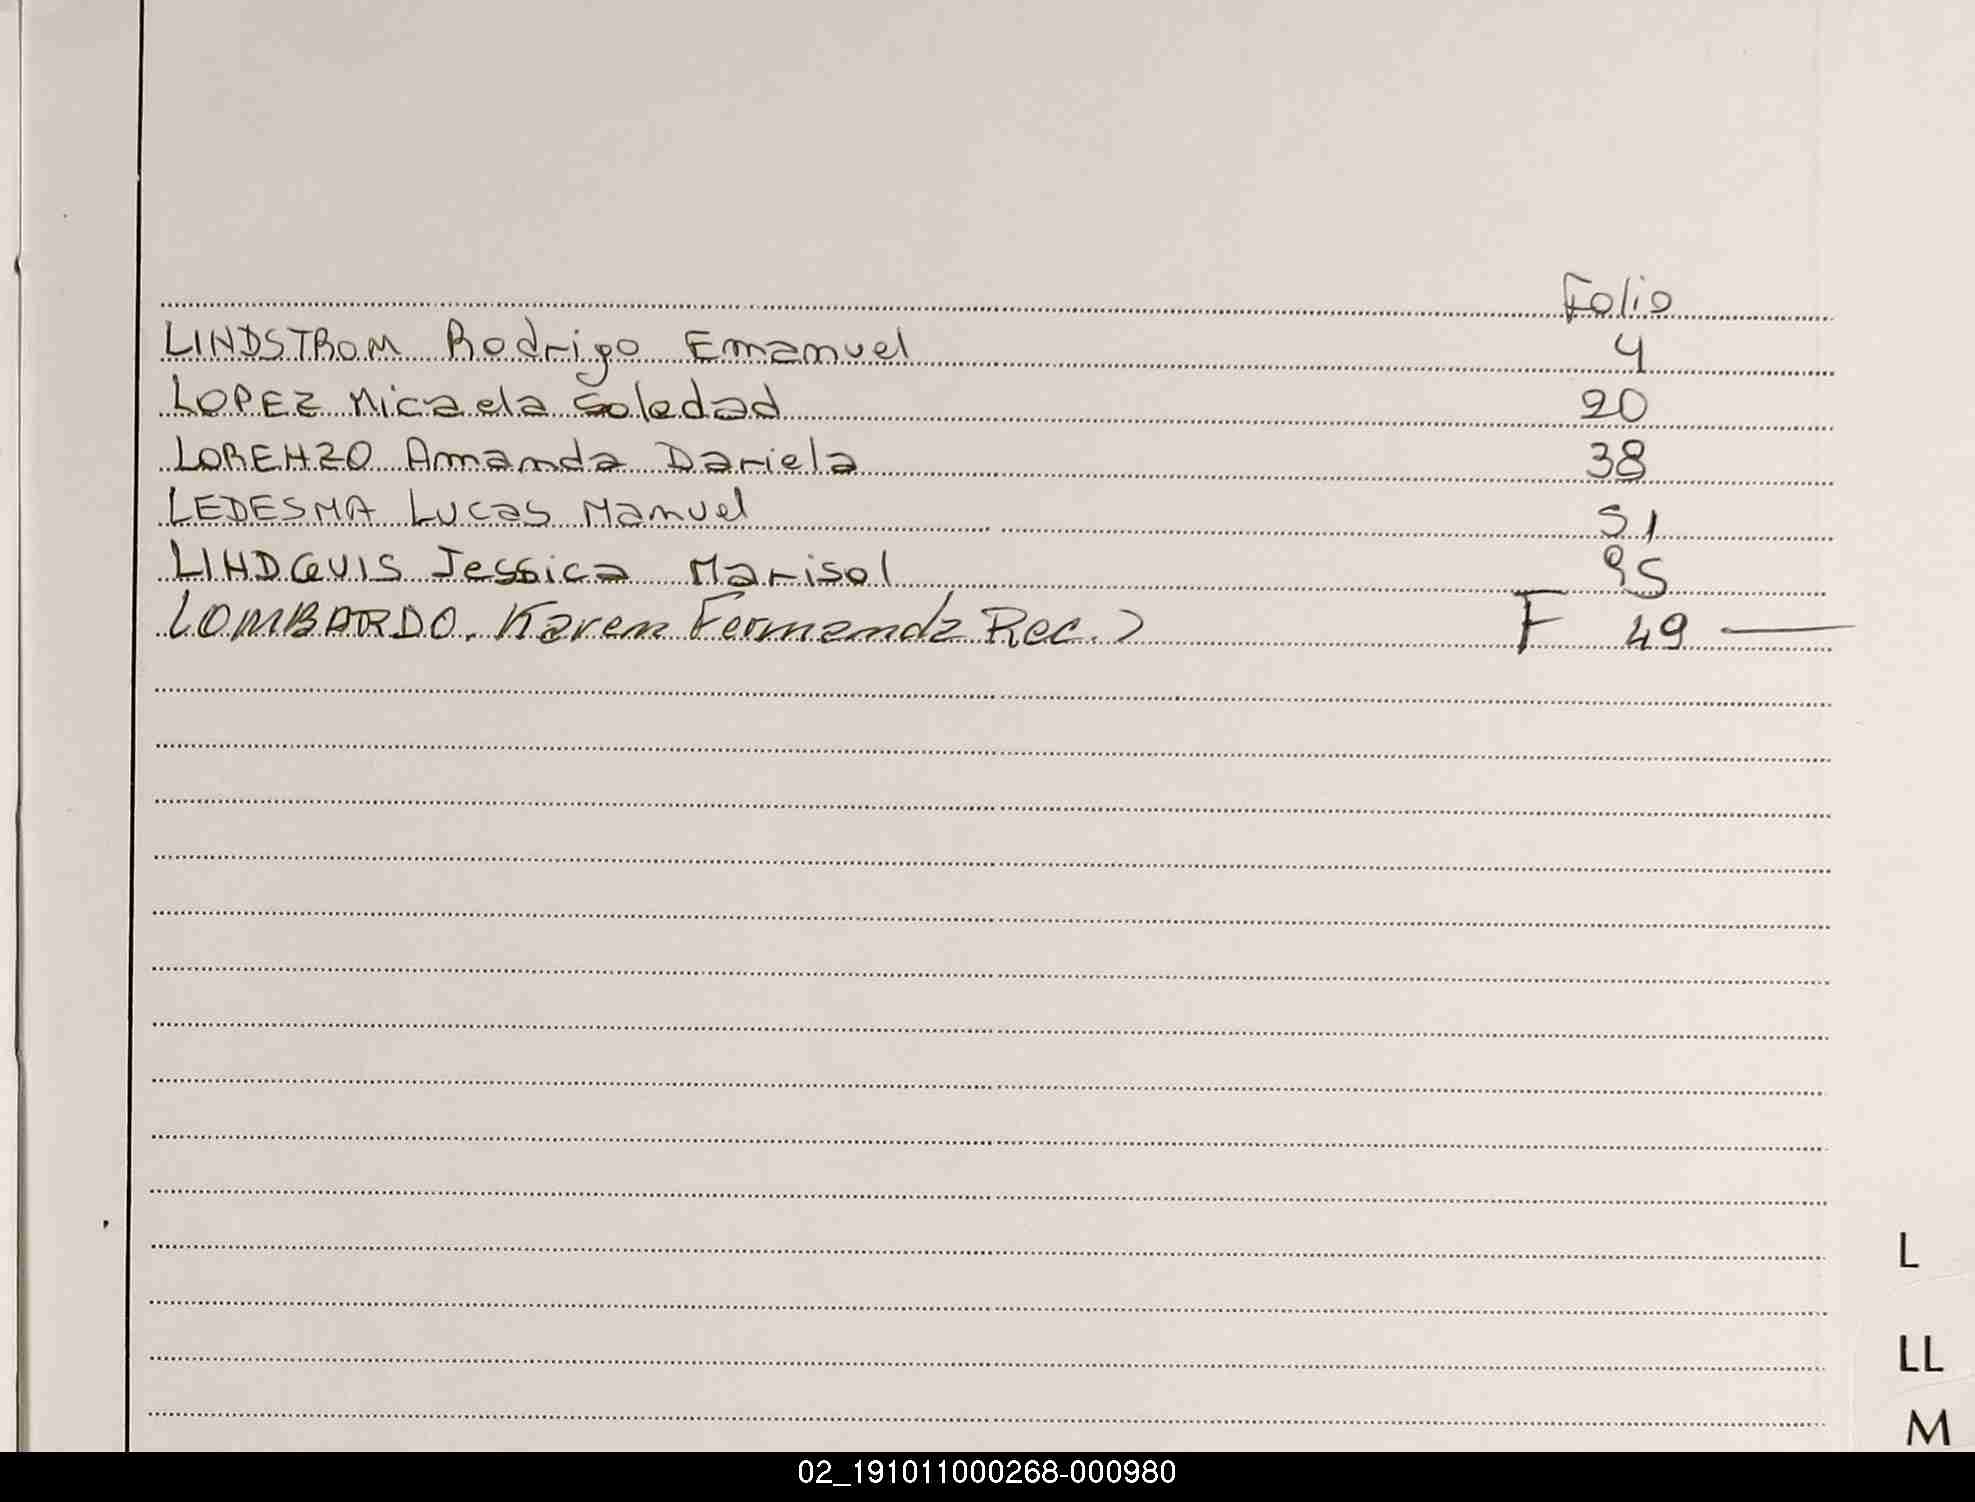 Folio
LINDSTROM Rodrigo Emanuel 4
LOPEZ Micaela Soledad 20
LORENZO Amanda Daniela 38
LEDESMA Lucas Manuel 51
LINDQUIS Jessica Marisol 95
LOMBARDO. Karen Fernanda Rec.) F 49 —
L
LL
M
02_191011000268-000980